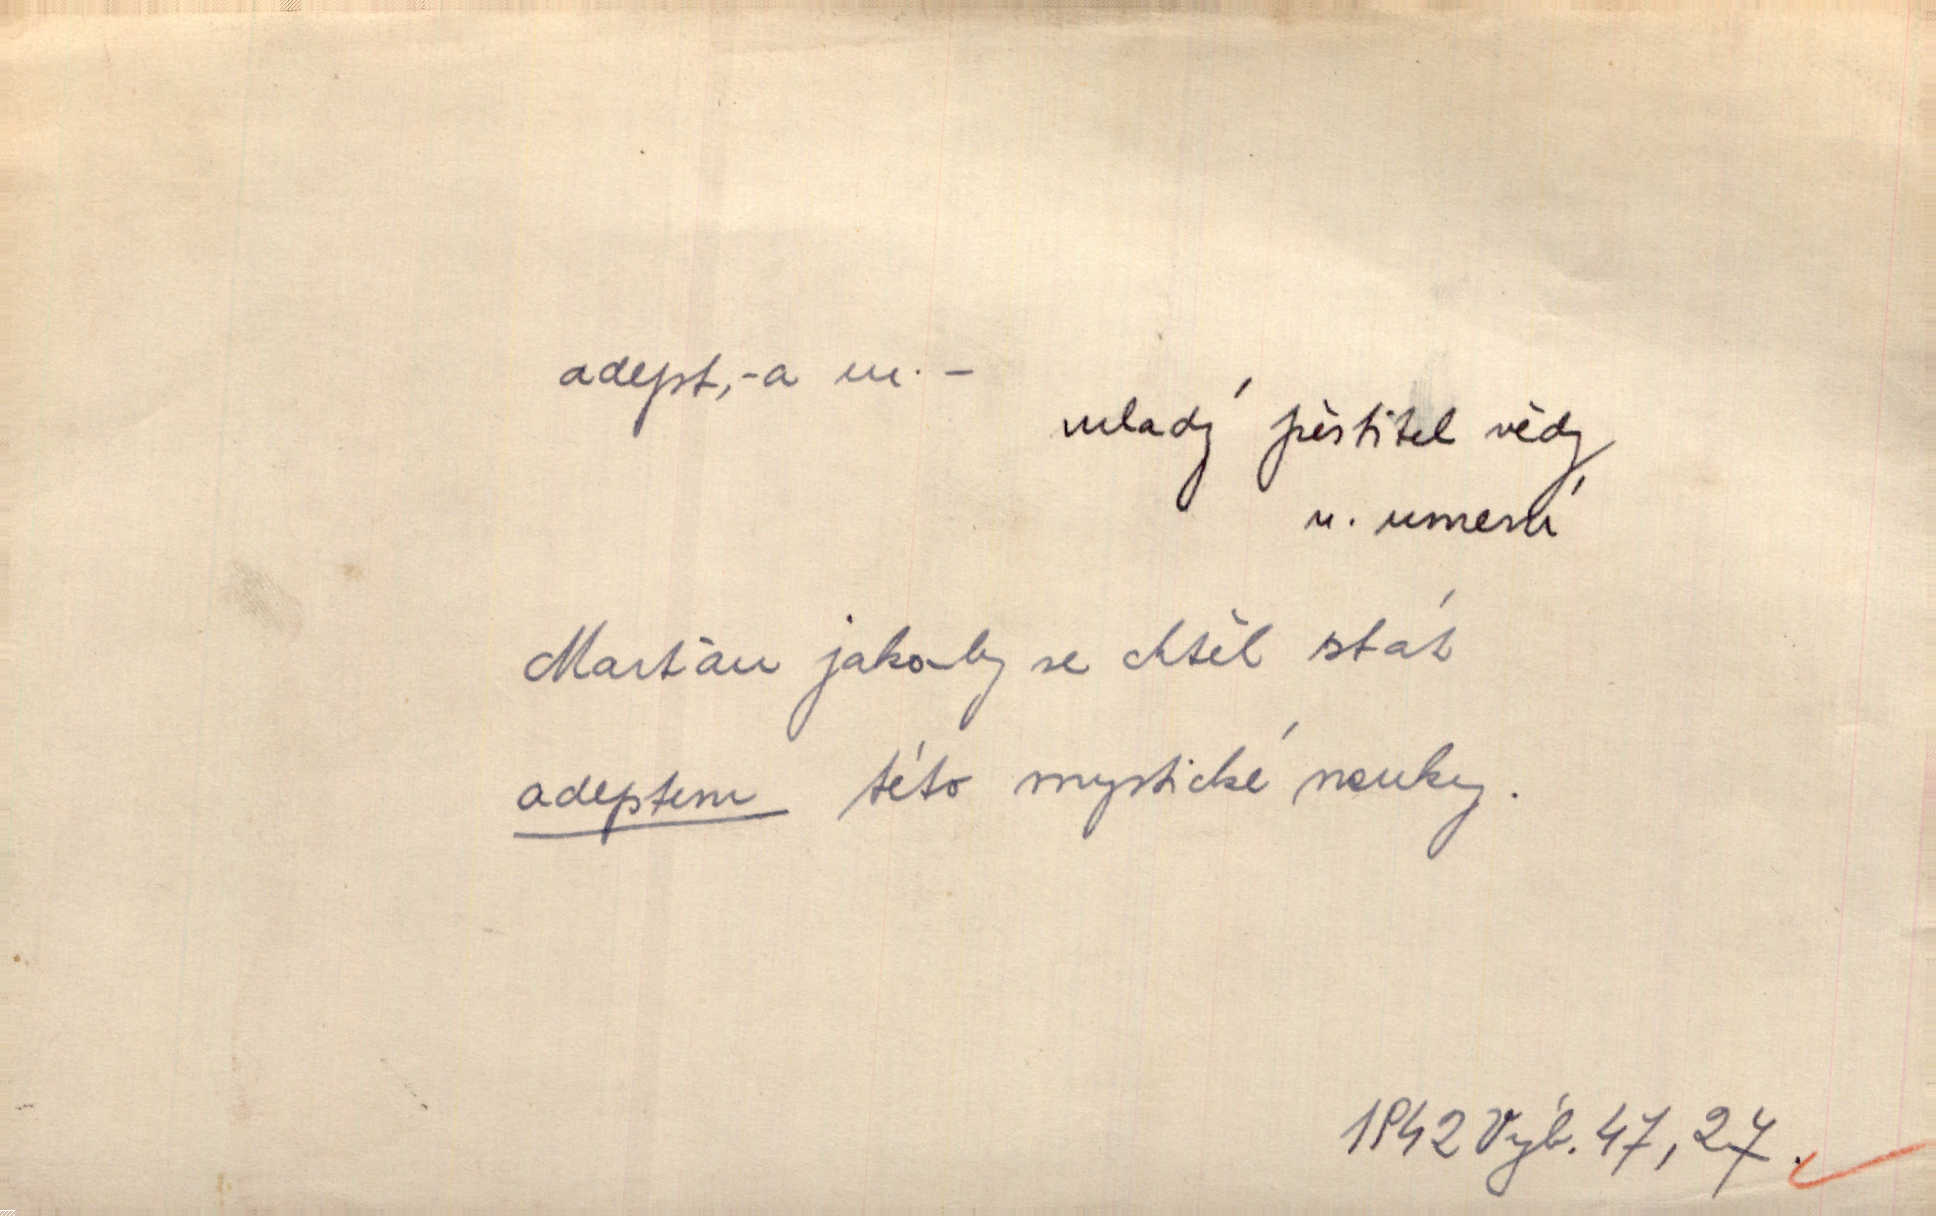 adept, -a m. –
mladý pěstitel vědy
n. umění
Martan jakoby se chtěl stát
adeptem této mystické nauky.
1942 Výb. 47, 27.